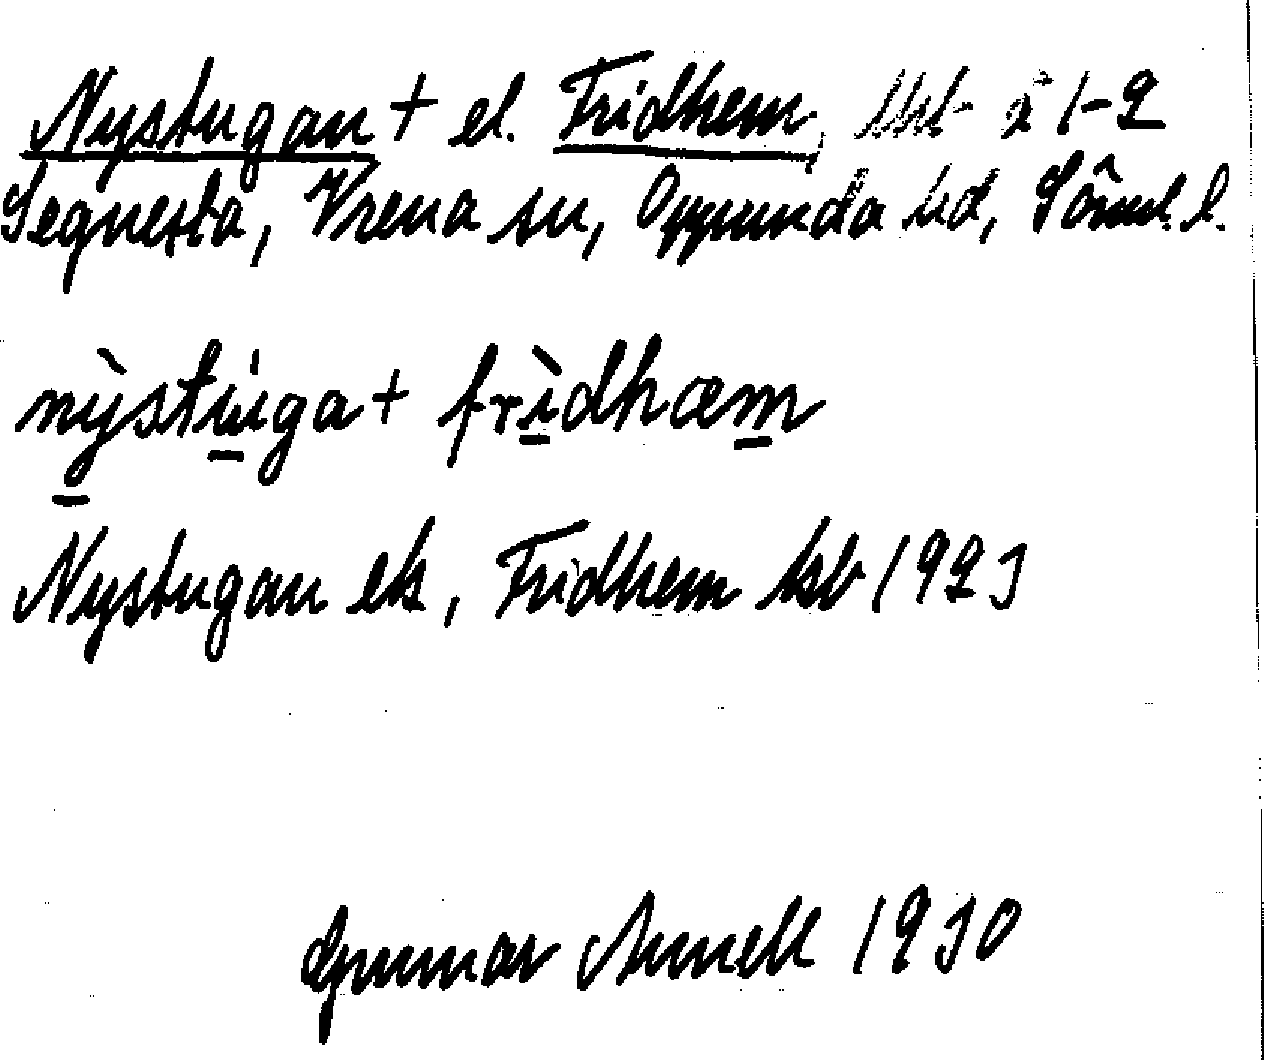 Nystugan + el. Fridhem, lht å 1-2
Segnesta, Vrena sn, Oppunda hd, Söml. l.
nỳstu̇ga + frìdhæm
Nystugan ek, Fridhem ksb 1923
Gunnar Arnell 1930